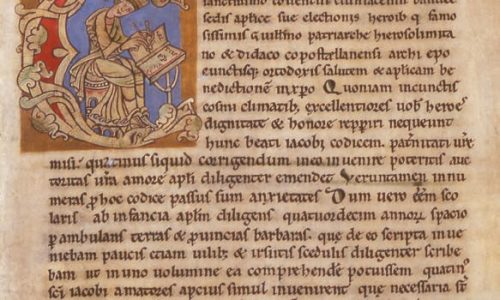 sedis aplice sue electionis heroib; q famo
sissimis patriarche hierosolimita
no & didaco cõpostellanensi archi epo
cunctisq; ortodoxis salutem & aplicam be
nedictionem in xpo Quoniam in cunctis
cosmi climatib; excellentiores uob heroes
dignitate & honore reppiri nequeunt
hunc beati iacobi codicem. pat̃nitati ur̃e
misi. quatinus siquid corrigendum in eo inuenire poteritis auc
toritas ur̃a amore apl̃i diligenter emendet Veruntamen in nu
meras p hoc codice passus sum anxietates Dum uero eẽm sco
laris ab infancia apl̃m diligens quatuordecim annorũ spacio
p ambulans terras & prouincias barbaras. que de eo scripta inue
niebam paucis etiam uilib; & irsutis scedulis diligenter scribe
bam ut in uno uolumine ea comprehende potuissem quatin
sc̃i iacobi amatores apcius simul inuenirent que necessaria st̃